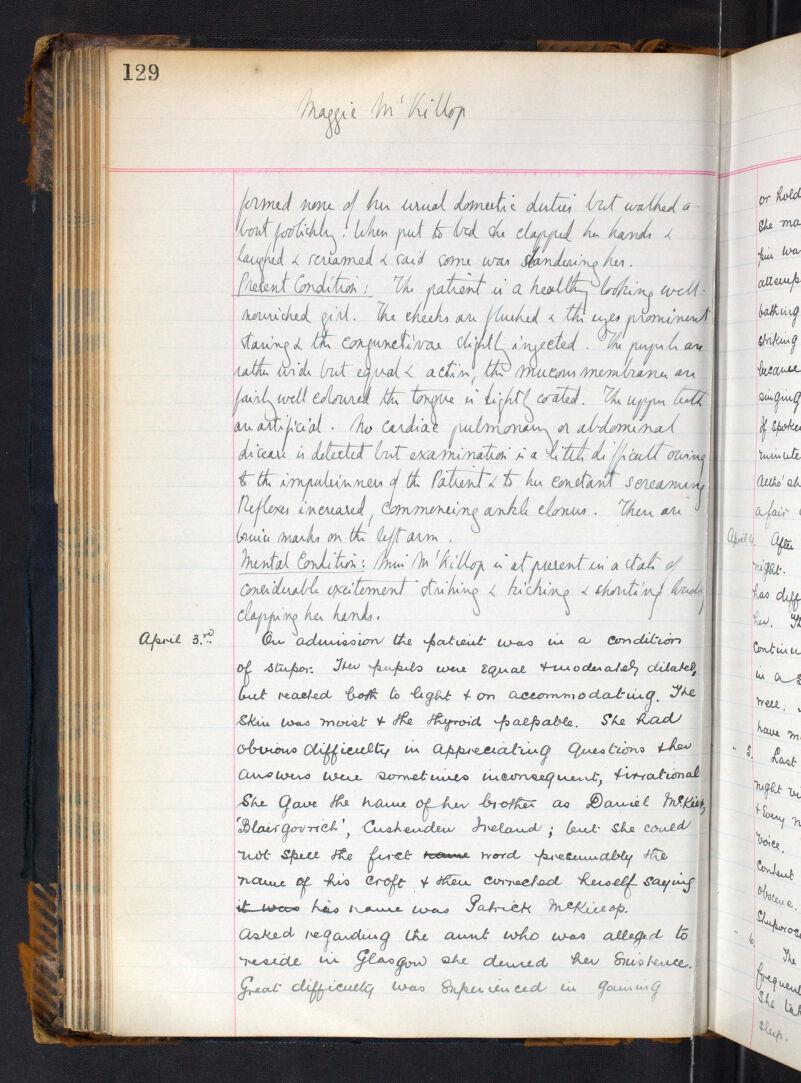 129
Maggie McKillop
formed none of her usual domestic duties but walked a-
bout foolishly. When put to bed she clapped her hands &
laughed & screamed & said some was slandering her.
Present Condition: The patient is a healthy looking well-
nourished girl. The cheeks are flushed & the eyes prominent
staring & the conjunctivae slightly injected. The pupils are
rather wide but equal & active, the mucous membranes are
fairly well coloured the tongue is slightly coated. The upper teeth
are artificial. No cardiac pulmonary or abdominal
disease is detected but examination is a little difficult owing
to the impulsiveness of the Patient & to her constant screaming
Reflexes increased, commencing ankle clonus. There are
bruise marks on the left arm.
Mental Condition: Miss McKillop is at present in a state of
considerable excitement striking & kicking & shouting loudly
clapping her hands.
April 3.rd On admission the patient was in a condition
of stupor. Her pupils were equal & moderately dilated,
but reacted both to light & on accommodating. The
Skin was moist & the thyroid palpable. She had
obvious difficulty in appreciating questions & her
answers were sometimes inconsequent, & irrational
She gave the name of her brother as Daniel McKillop,
'Blairgowrich', Cushenden Ireland; but she could
not spell the first name word presumably the
name of his croft & then corrected herself saying
it was his name was Patrick McKillop.
Asked regarding the aunt who was alleged to
reside in Glasgow she denied her existence.
Great difficulty was experienced in gaining
or hold
She ma
pin wa
attemp
bathing
striking
because
singing
If spoke
minute
a fair
April 4. After
night.
has diff
her. Th
Continu
in a s
well.
have m
" 5. Last
night
& Every n
voice.
Content
obscene.
Stuporos
" 6. The
frequent
She
sleep.